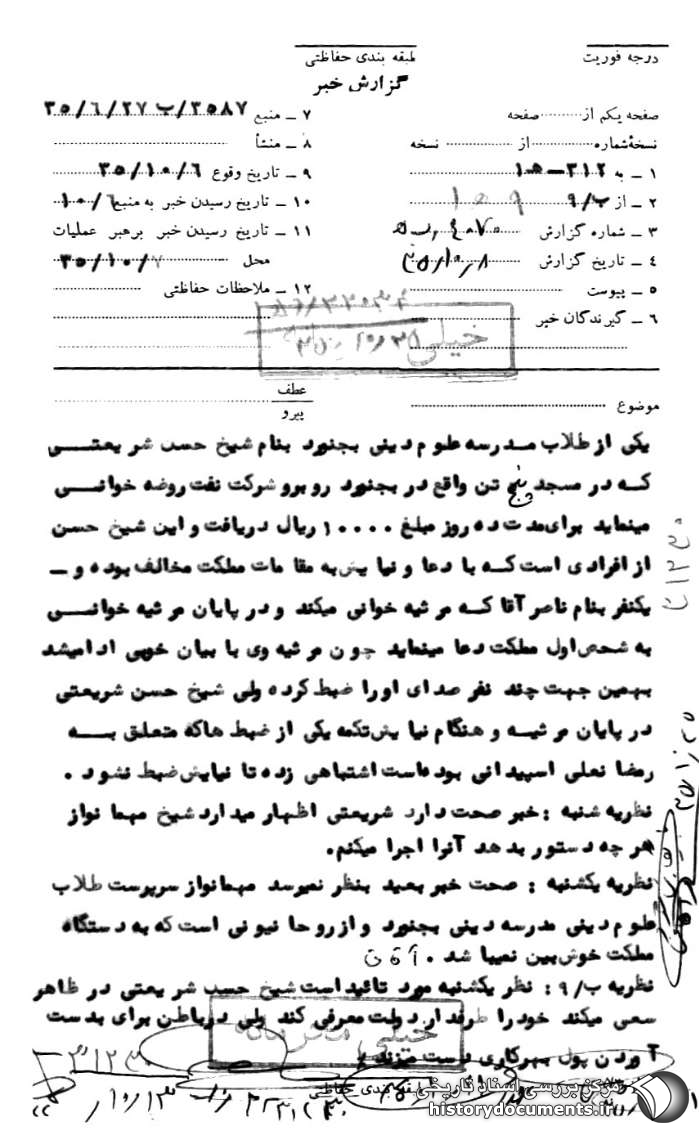 درجه فوریت
طبقه بندی حفاظتی
گزارش خبر
صفحه یکم از صفحه
نسخهٔ شماره از نسخه
۱ ـ به ۳۱۲ـ ه ۱
۲ ـ از ۹/ب ۹ ه ۱
۳ ـ شماره گزارش
۴ ـ تاریخ گزارش
۵ ـ پیوست
۶ ـ گیرندگان خبر
۷ ـ منبع ۳۵۸۷/ب ۳۵/۶/۲۷
۸ ـ منشأ
۹ ـ تاریخ وقوع ۳۵/۱۰/۶
۱۰ ـ تاریخ رسیدن خبر به منبع ۱۰/۶
۱۱ ـ تاریخ رسیدن خبر برهبر عملیات
محل ۳۵/۱۰/۷
۱۲ ـ ملاحظات حفاظتی
خیلی
موضوع
عطف
پیرو
یکی از طلاب مدرسه علوم دینی بجنورد بنام شیخ حسن شریعتـــی
کــه در مسجد پنج تن واقع در بجنورد روبرو شرکت نفت روضه خوانـــی
مینماید برای مدت ده روز مبلغ ۱۰۰۰۰ ریال دریافت و این شیخ حسن
از افرادی است کــه با دعا و نیایش به مقامات مملکت مخالف بوده و ـ
یکنفر بنام ناصر آقا کــه مرثیه خوانی میکند و در پایان مرثیه خوانـــی
به شخص اول مملکت دعا مینماید چون مرثیه وی با بیان خوبی ادا میشد
بهمین جهت چند نفر صدای او را ضبط کرده ولی شیخ حسن شریعتی
در پایان مرثیــه و هنگام نیایش تکمه یکی از ضبط ها که متعلق بـــه
رمضانعلی اسپیدانی بوده است اشتباهی زده تا نیایش ضبط نشود .
نظریه شنبه : خبر صحت دارد شریعتی اظهار میدارد شیخ مهمانواز
هر چه دستور بدهد آنرا اجرا میکنم.
نظریه یکشنبه : صحت خبر بعید بنظر نمیرسد مهمانواز سرپرست طلاب
علوم دینی مدرسه دینی بجنورد و از روحانیونی است که به دستگاه
مملکت خوش بین نمیباشد .
نظریه ۹/ب : نظر یکشنبه مورد تائید است شیخ حسن شریعتی در ظاهر
سعی میکند خود را طرفدار دولت معرفی کند ولی در باطن برای بدست
آوردن پول بهر کاری دست میزند .
خیلی محرمانه
طبقه بندی حفاظتی
مرکز بررسی اسناد تاریخی
historydocuments.ir